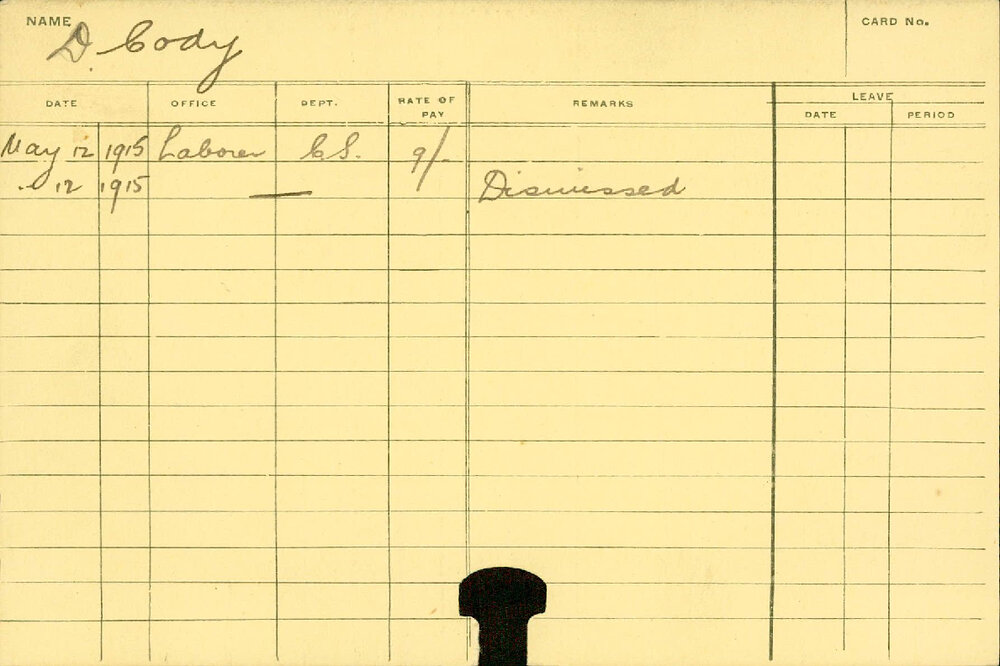 NAME D. Cody CARD No.
LEAVE
DATE OFFICE DEPT. RATE OF PAY REMARKS DATE PERIOD
May 12 1915 Laborer C.S. 9/-
" 12 1915 — Dismissed